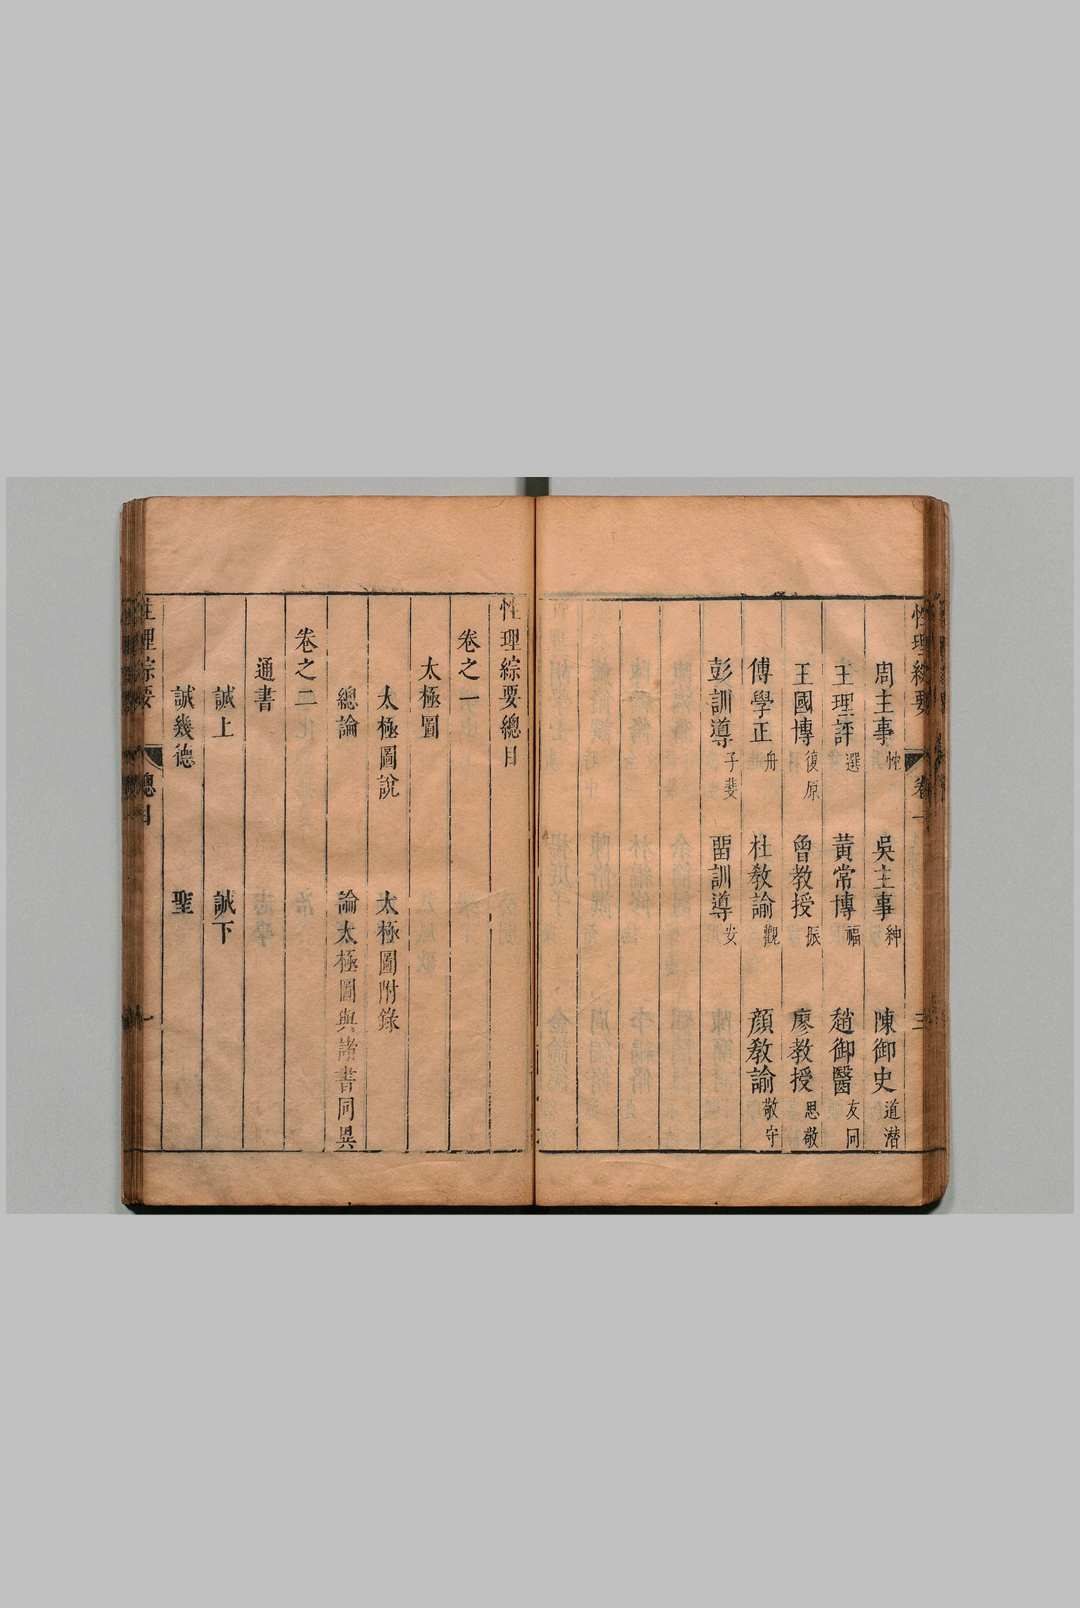 性理綜要 卷一 三
周主事忱 吳主事紳 陳御史道潛
王理評選 黃常博福 趙御醫友同
王國博復原 曾教授振 廖教授思敬
傅學正舟 杜教諭觀 顏教諭敬守
彭訓導子斐 留訓導安
性理綜要總目
卷之一
太極圖
太極圖說 太極圖附錄
總論 論太極圖與諸書同異
卷之二
通書
誠上 誠下
誠幾德 聖
性理綜要 總目 一